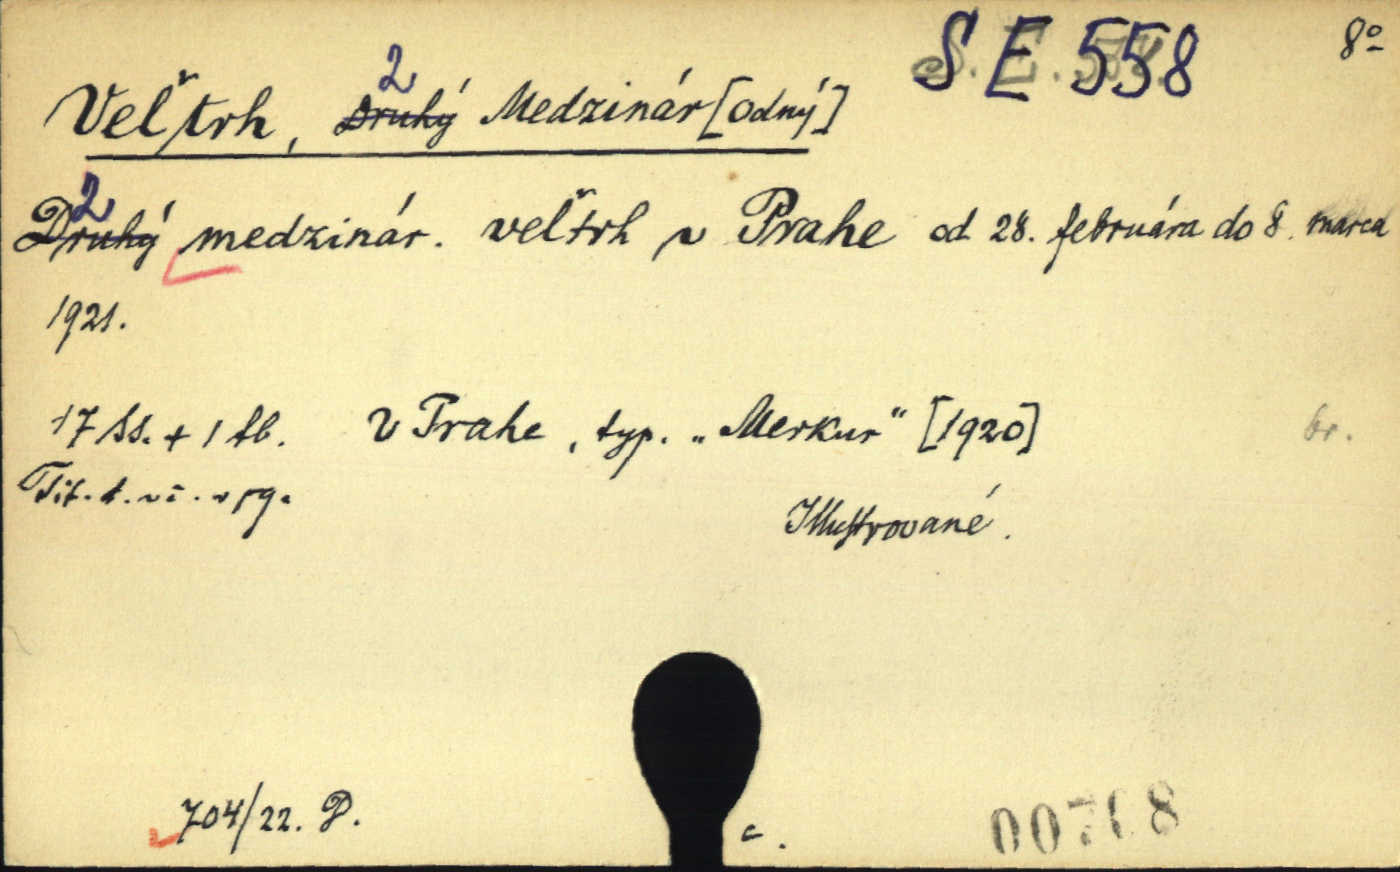 S E 558
8º
Veľtrh, 2 Druhý Medzinár[odný]
2 Druhý medzinár. veľtrh v Prahe od 28. februára do 8. marca
1921.
17 ss. + 1 tb. V Prahe, typ. „Merkur" [1920] br.
Illustrované.
704/22. P.
c.